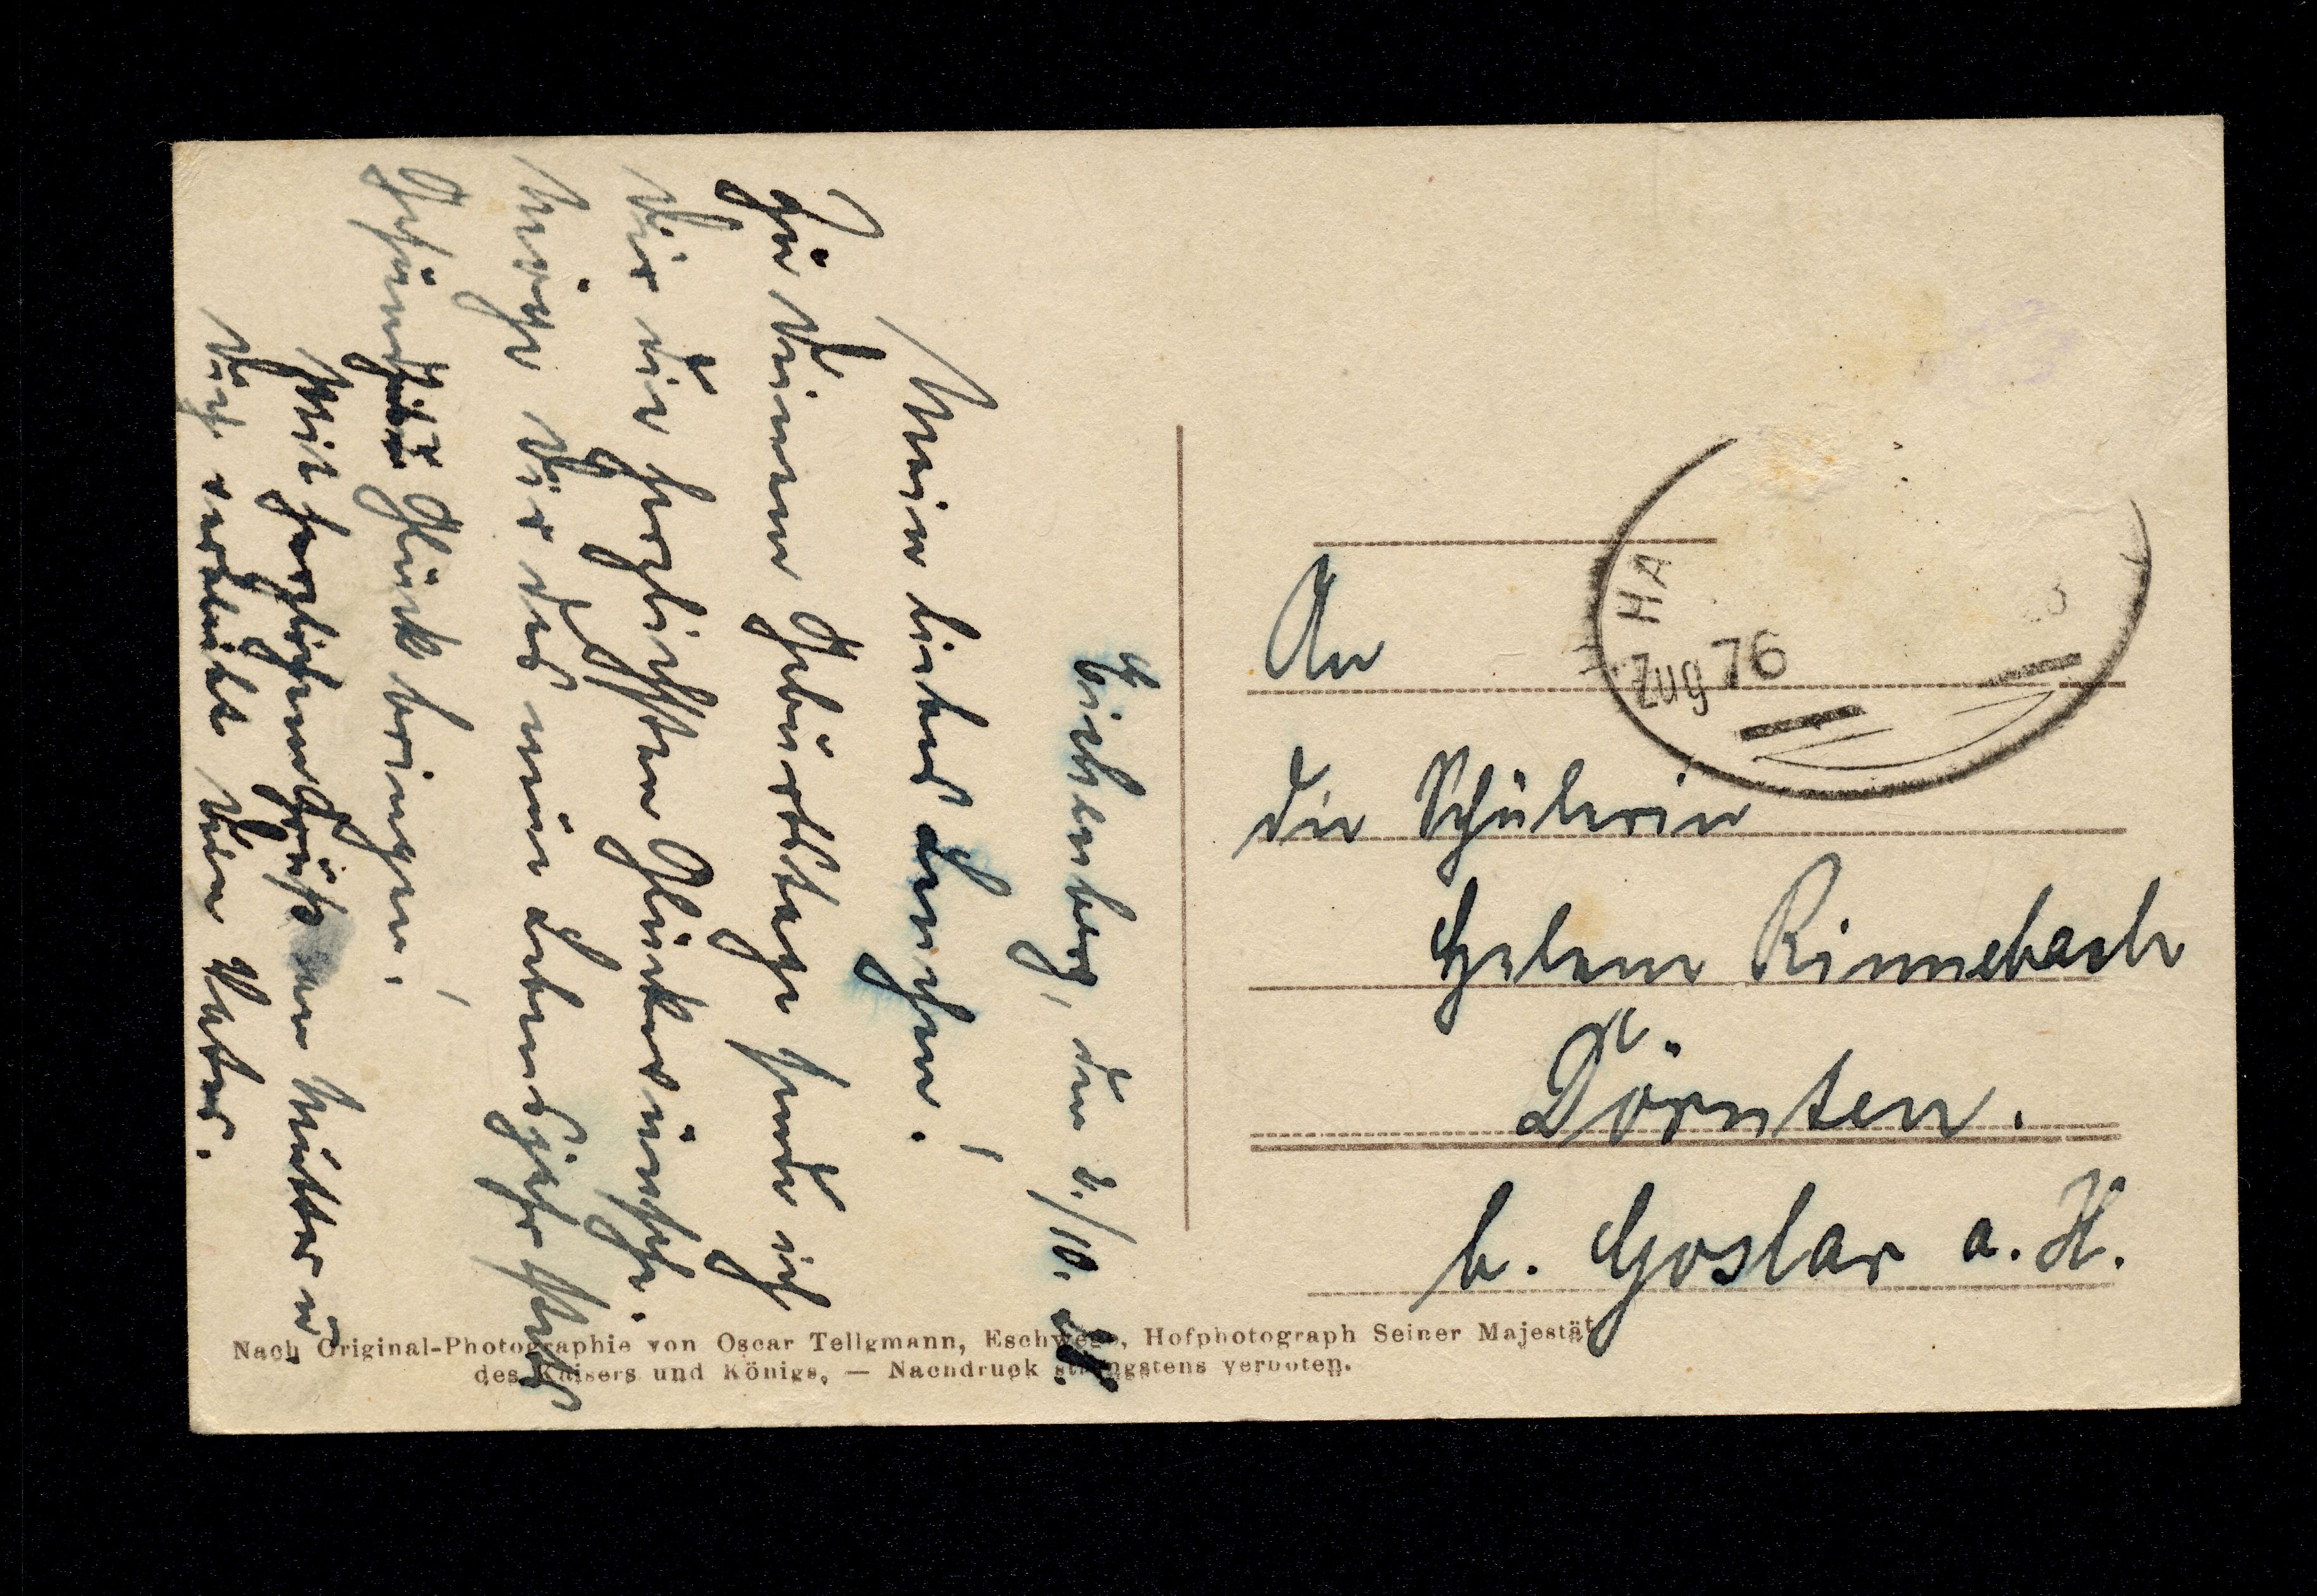 Eichenberg, den 2./10.
Mein liebes Lenchen!
Zu Deinem Geburtstage sende ich
Dir die herzlichsten Glückwünsche.
Möge Dir das neue Lebensjahr stets
Gesundheit u. Glück bringen!
Mit herzlichem Gruß an Mutter u.
Dich verbleibt Dein Vater.
An
die Schülerin
Helene Rinnebach
Dörnten.
b. Goslar a. H.
HA
Zug 76
Nach Original-Photographie von Oscar Tellgmann, Eschwege, Hofphotograph Seiner Majestät
des Kaisers und Königs. — Nachdruck strengstens verboten.